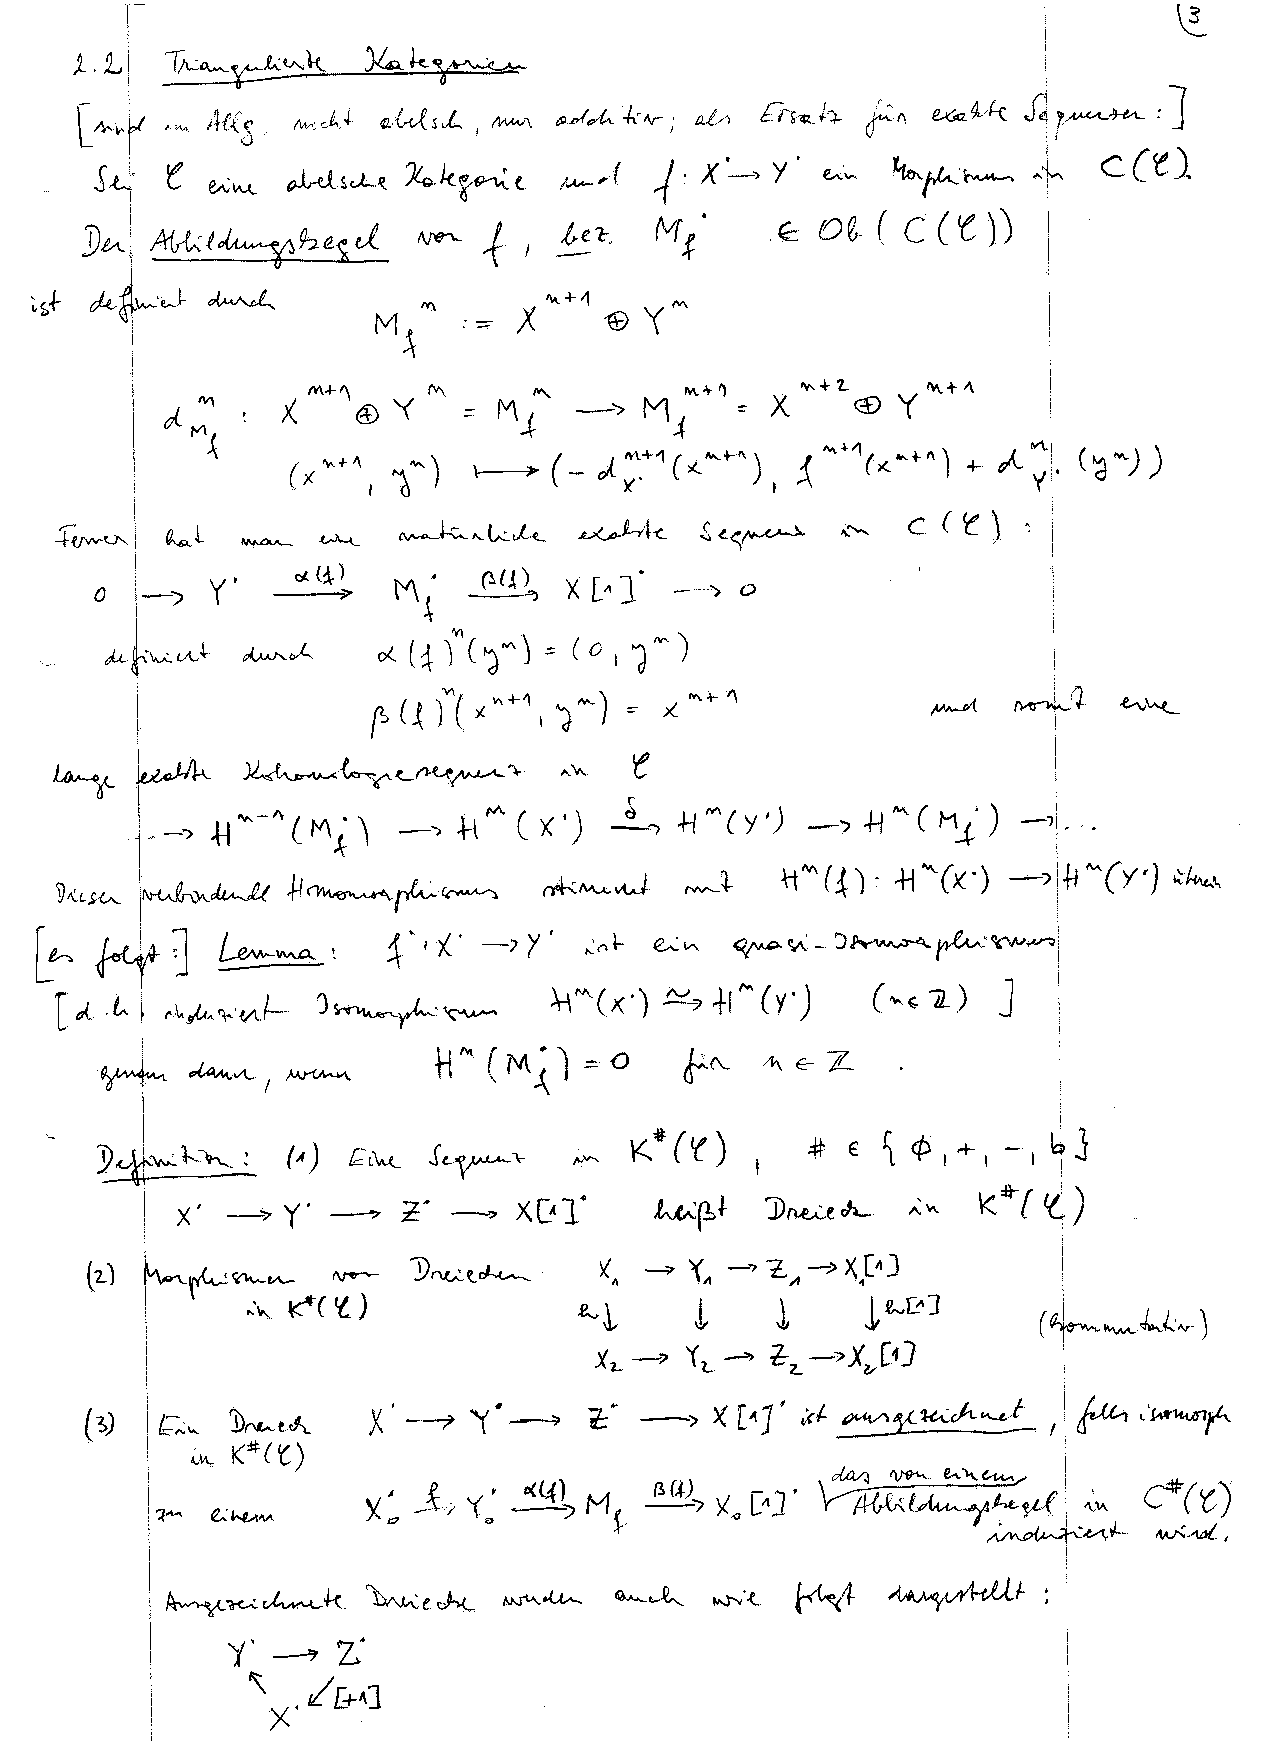 (3
2.2 Triangulierte Kategorien
[sind im Allg. nicht abelsch, nur additiv; als Ersatz für exakte Sequenzen:]
Sei 𝒞 eine abelsche Kategorie und f: X˙ → Y˙ ein Morphismus in C(𝒞).
Der Abbildungskegel von f, bez. M_f˙ ∈ Ob(C(𝒞))
ist definiert durch
M_f^n := X^{n+1} ⊕ Y^n
d_{M_f}^n : X^{n+1} ⊕ Y^n = M_f^n → M_f^{n+1} = X^{n+2} ⊕ Y^{n+1}
(x^{n+1}, y^n) ⟼ (-d_{X˙}^{n+1}(x^{n+1}), f^{n+1}(x^{n+1}) + d_{Y˙}^n(y^n))
Ferner hat man eine natürliche exakte Sequenz in C(𝒞):
0 → Y˙ —α(f)→ M_f˙ —β(f)→ X[1]˙ → 0
definiert durch α(f)^n(y^n) = (0, y^n)
β(f)^n(x^{n+1}, y^n) = x^{n+1} und somit eine
lange exakte Kohomologiesequenz in 𝒞
..→ H^{n-1}(M_f˙) → H^n(X˙) —δ→ H^n(Y˙) → H^n(M_f˙) → ...
Dieser verbindende Homomorphismus stimmt mit H^n(f): H^n(X˙) → H^n(Y˙) überein
[es folgt:] Lemma: f˙: X˙ → Y˙ ist ein quasi-Isomorphismus
[d.h. induziert Isomorphismen H^n(X˙) ≃→ H^n(Y˙) (n∈ℤ)]
genau dann, wenn H^n(M_f˙) = 0 für n ∈ ℤ.
Definition: (1) Eine Sequenz in K^#(𝒞), # ∈ {∅, +, -, b}
X˙ → Y˙ → Z˙ → X[1]˙ heißt Dreieck in K^#(𝒞)
(2) Morphismen von Dreiecken X₁ → Y₁ → Z₁ → X₁[1]
in K^#(𝒞) h↓ ↓ ↓ ↓h[1] (kommutativ)
X₂ → Y₂ → Z₂ → X₂[1]
(3) Ein Dreieck X˙ → Y˙ → Z˙ → X[1]˙ ist ausgezeichnet, falls isomorph
in K^#(𝒞)
zu einem X₀˙ —f→ Y₀˙ —α(f)→ M_f —β(f)→ X₀[1]˙ das von einem Abbildungskegel in C^#(𝒞)
induziert wird.
Ausgezeichnete Dreiecke werden auch wie folgt dargestellt:
Y˙ → Z˙
↖ ↙[+1]
X˙